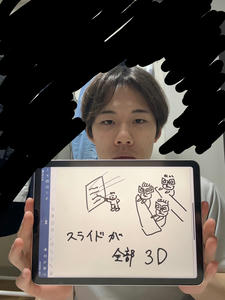 スライドが
全部 3D